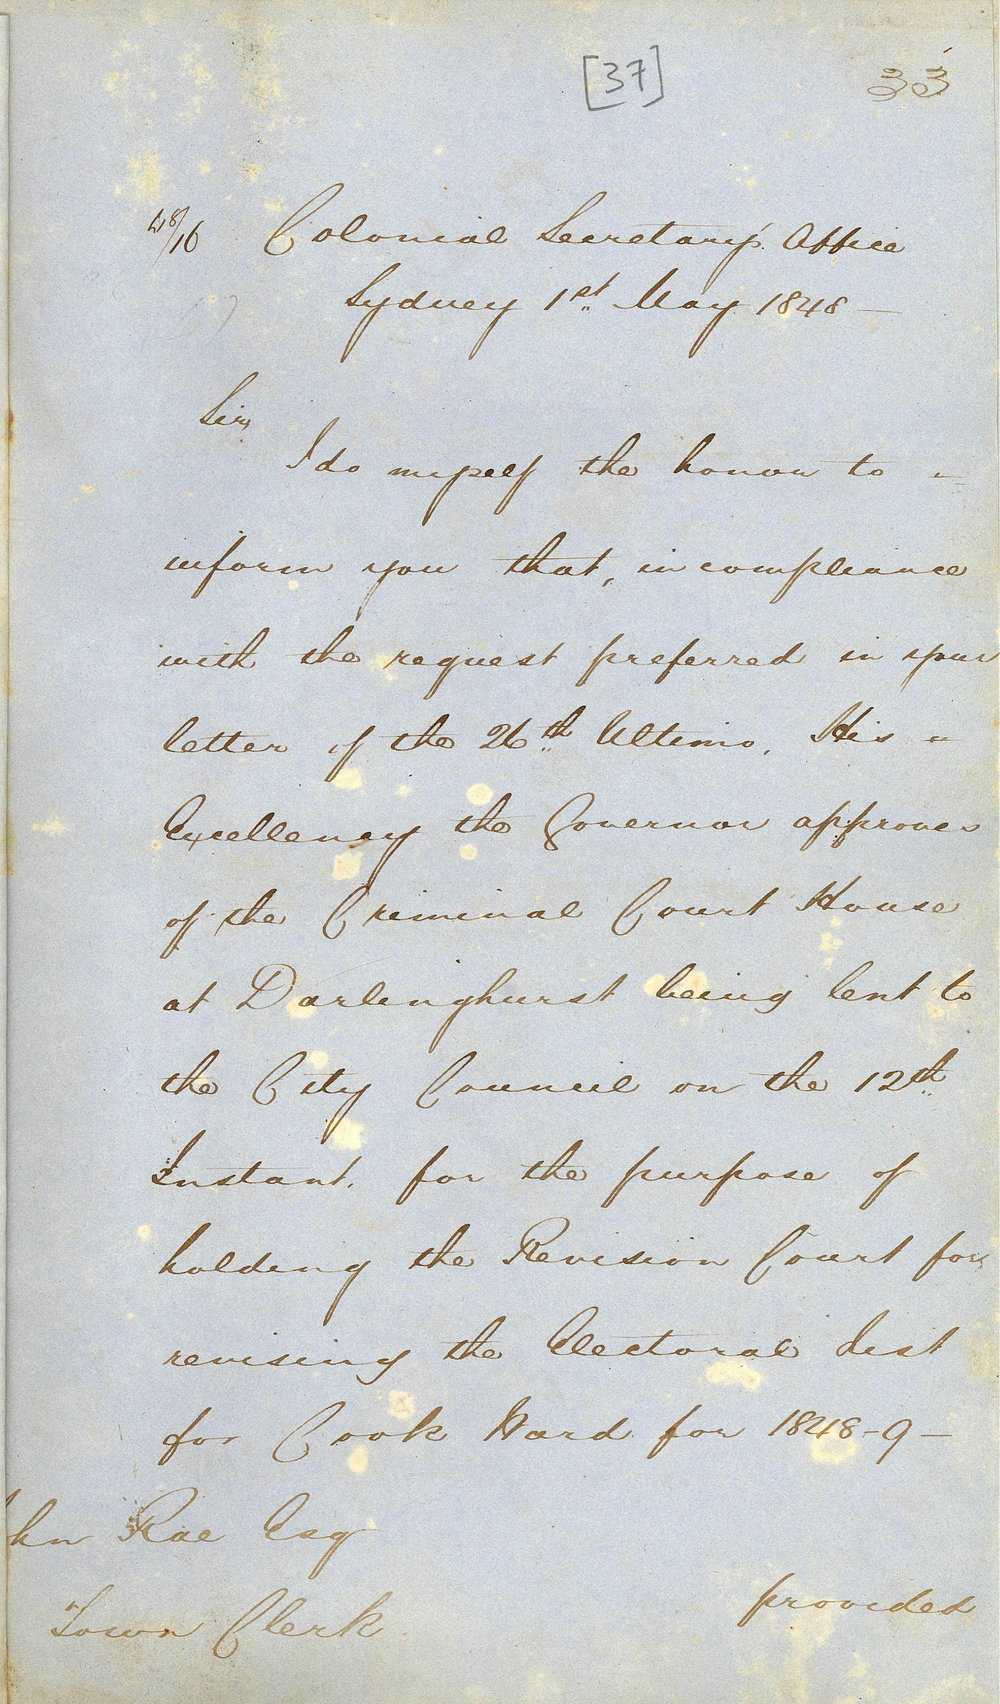 [37]
33
48/16 Colonial Secretary's Office
Sydney 1st May 1848 –
Sir,
I do myself the honor to
inform you that, in compliance
with the request preferred in your
letter of the 26th Ultimo, His
Excellency the Governor approves
of the Criminal Court House
at Darlinghurst being lent to
the City Council on the 12th
Instant, for the purpose of
holding the Revision Court for
revising the Electoral List
for Cook Ward for 1848-9 –
John Rae Esq
Town Clerk
provided